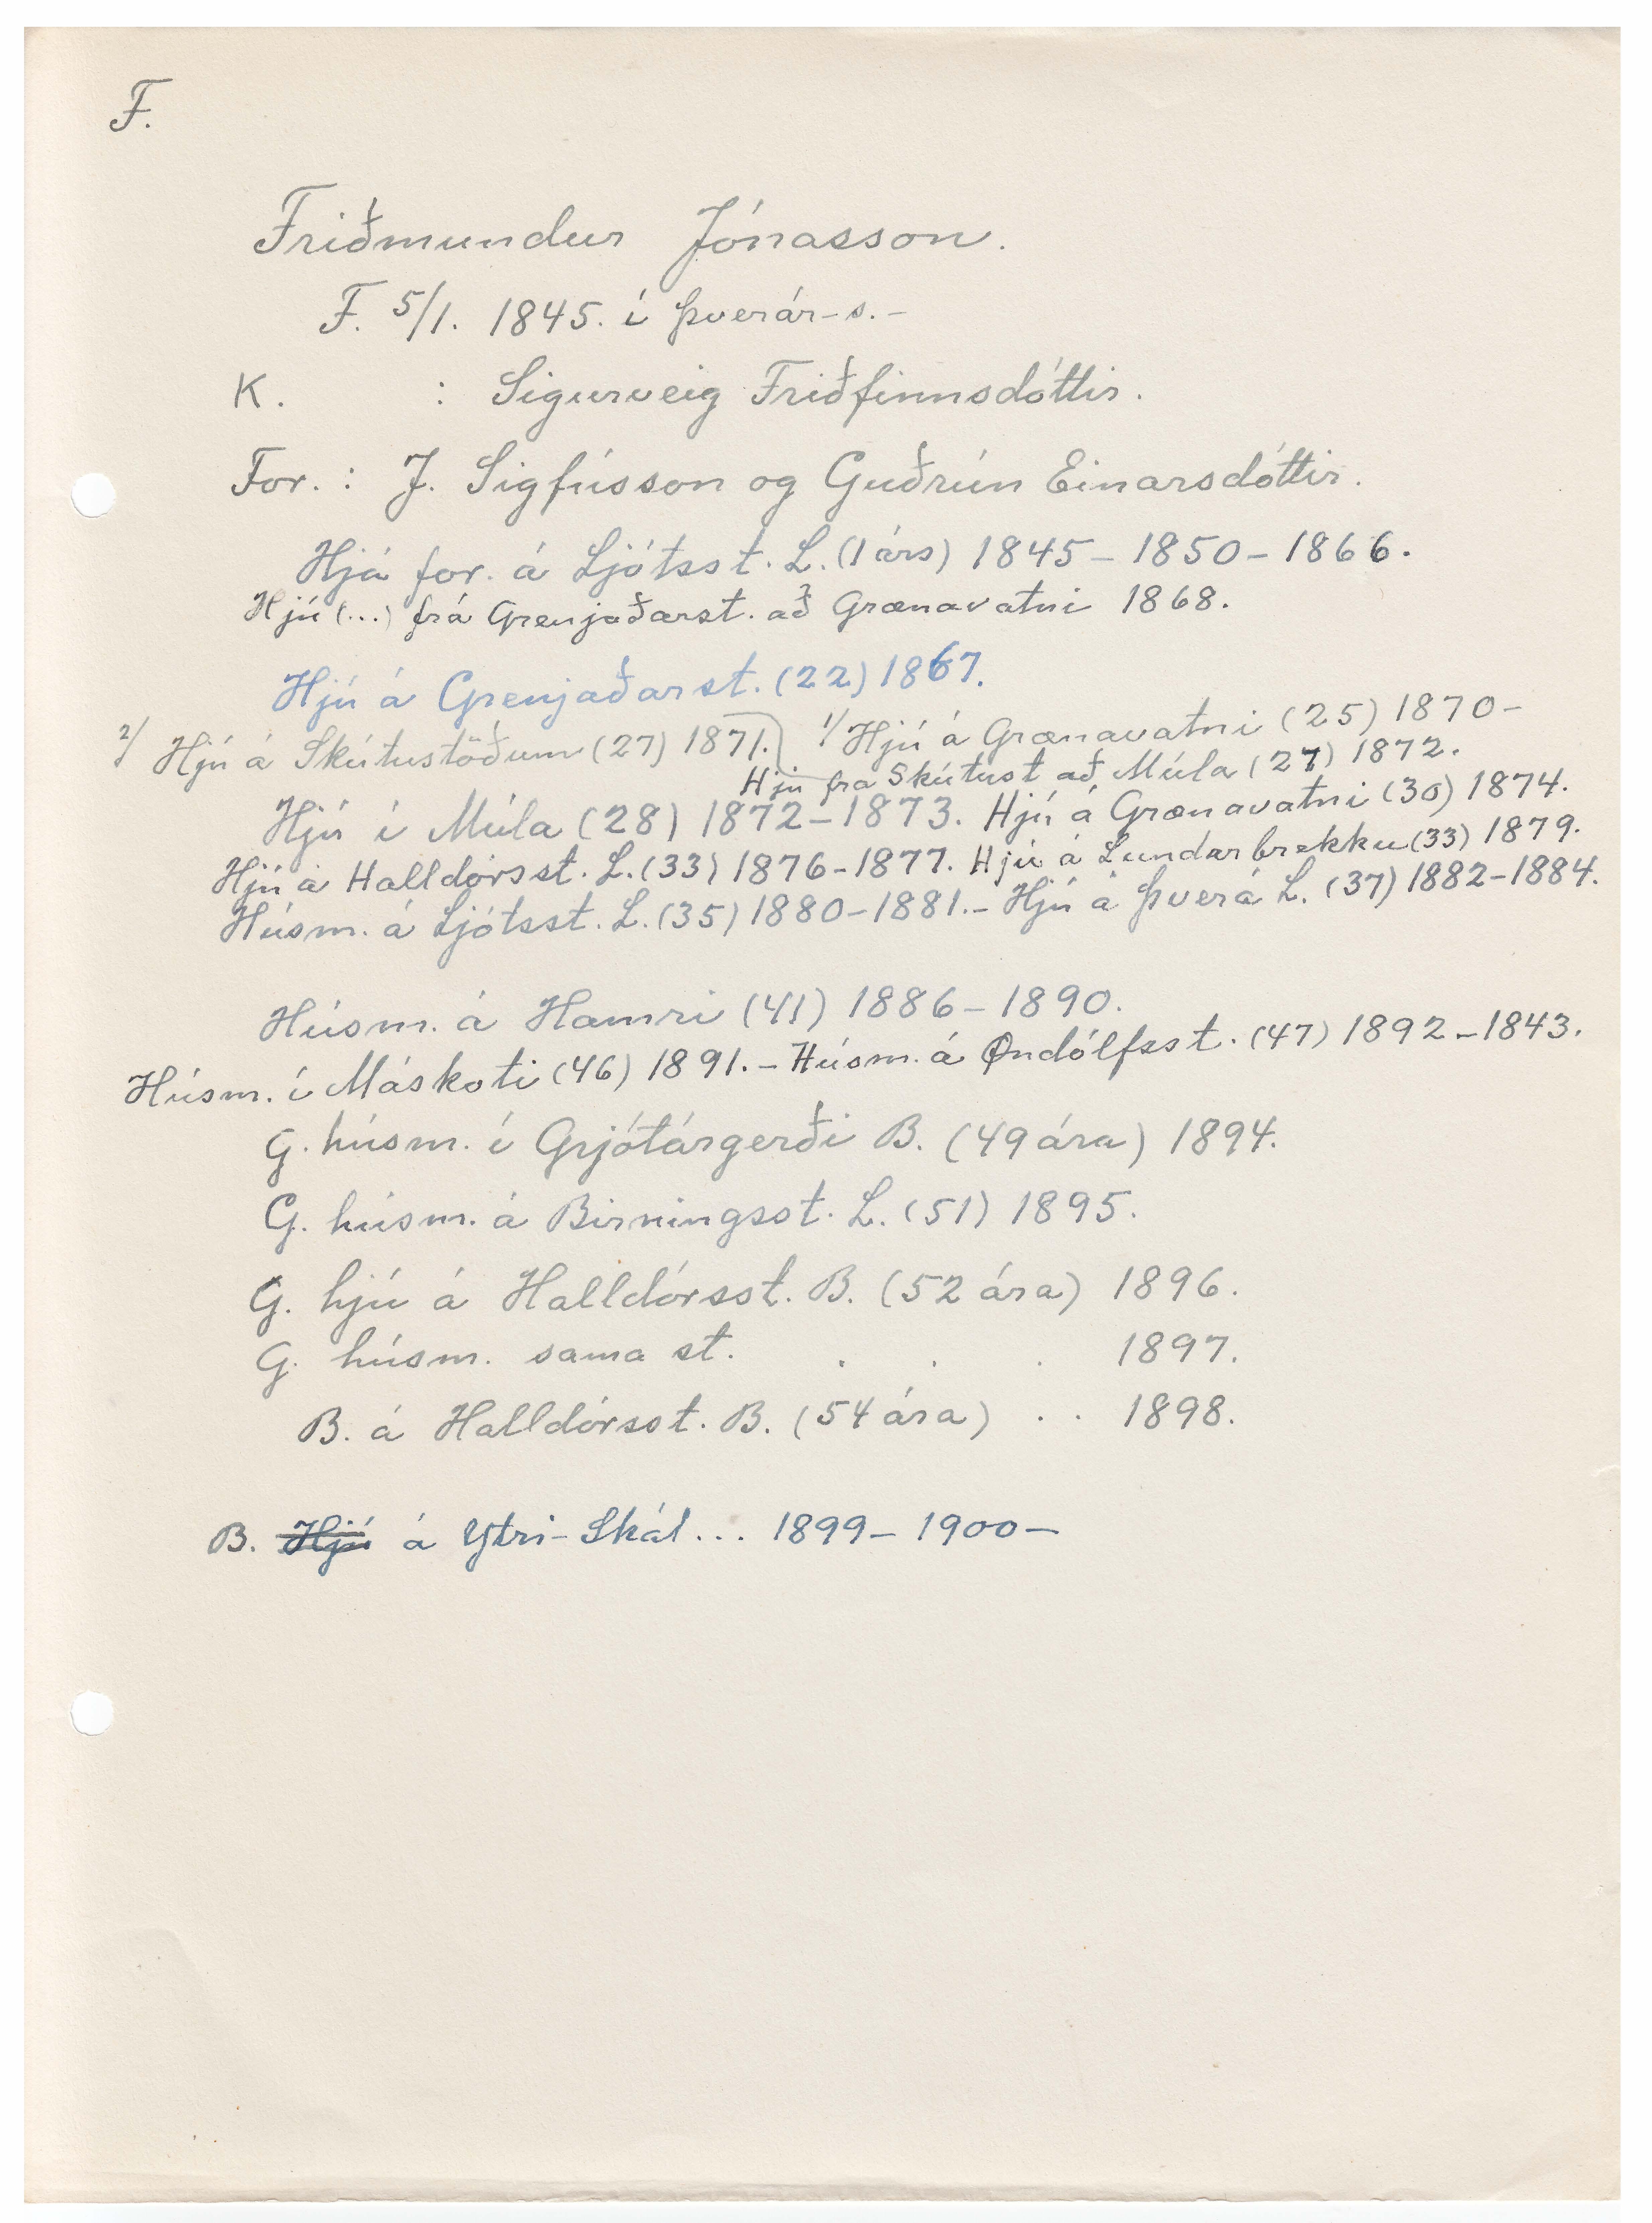 F.
Friðmundur Jónasson.
F. 5/1. 1845. í Þverár-s. -
K. : Sigurveig Friðfinnsdóttir.
For. : J. Sigfússon og Guðrún Einarsdóttir.
Hjá for. á Ljótsst. L. (1 árs) 1845 - 1850 - 1866.
Hjú (...) frá Grenjaðarst. að Grænavatni 1868.
Hjú á Grenjaðarst. (22) 1867.
2/ Hjú á Skútustöðum (27) 1871. 1/ Hjú á Grænavatni (25) 1870 -
Hjú frá Skútust að Múla (27) 1872.
Hjú í Múla (28) 1872 - 1873. Hjú á Grænavatni (30) 1874.
Hjú á Halldórsst. L. (33) 1876 - 1877. Hjú á Lundarbrekku (33) 1879.
Húsm. á Ljótsst. L. (35) 1880 - 1881. - Hjú á Þverá L. (37) 1882 - 1884.
Húsm. á Hamri (41) 1886 - 1890.
Húsm. í Máskoti (46) 1891. - Húsm. á Öndólfsst. (47) 1892 - 1843.
G. húsm. í Grjótárgerði B. (49 ára) 1894.
G. húsm. á Birningsst. L. (51) 1895.
G. hjú á Halldórsst. B. (52 ára) 1896.
G. húsm. sama st. . . . 1897.
B. á Halldórsst. B. (54 ára) . . 1898.
B. Hjú á Ytri-Skál ... 1899 - 1900 -